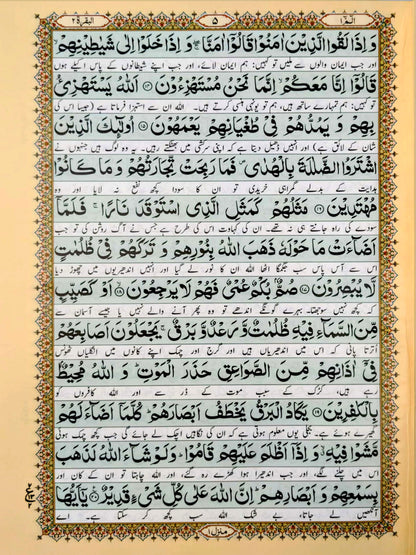 الٓمّٓ ١ ٥ البقرة ٢
وَ اِذَا لَقُوا الَّذِیْنَ اٰمَنُوْا قَالُوْۤا اٰمَنَّا ۖۚ وَ اِذَا خَلَوْا اِلٰى شَیٰطِیْنِهِمْ ۙ
اور جب ایمان والوں سے ملیں تو کہیں: ہم ایمان لائے، اور جب اپنے شیطانوں کے پاس اکیلے ہوں
قَالُوْۤا اِنَّا مَعَكُمْ ۙ اِنَّمَا نَحْنُ مُسْتَهْزِءُوْنَ ۝۱۴ اَللّٰهُ یَسْتَهْزِئُ
تو کہیں: ہم تمہارے ساتھ ہیں، ہم تو یونہی ہنسی کرتے ہیں۔ اللہ ان سے استہزا فرماتا ہے (جیسا اس کی
بِهِمْ وَ یَمُدُّهُمْ فِیْ طُغْیَانِهِمْ یَعْمَهُوْنَ ۝۱۵ اُولٰٓىِٕكَ الَّذِیْنَ
شان کے لائق ہے) اور انہیں ڈھیل دیتا ہے کہ اپنی سرکشی میں بھٹکتے رہیں۔ یہ وہ لوگ ہیں جنہوں نے
اشْتَرَوُا الضَّلٰلَةَ بِالْهُدٰى ۪ فَمَا رَبِحَتْ تِّجَارَتُهُمْ وَ مَا كَانُوْا
ہدایت کے بدلے گمراہی خریدی تو ان کا سودا کچھ نفع نہ لایا اور وہ
مُهْتَدِیْنَ ۝۱۶ مَثَلُهُمْ كَمَثَلِ الَّذِی اسْتَوْقَدَ نَارًا ۚ فَلَمَّاۤ
سودے کی راہ جانتے ہی نہ تھے۔ ان کی کہاوت اس کی طرح ہے جس نے آگ روشن کی تو جب
اَضَآءَتْ مَا حَوْلَهٗ ذَهَبَ اللّٰهُ بِنُوْرِهِمْ وَ تَرَكَهُمْ فِیْ ظُلُمٰتٍ
اس سے آس پاس سب جگمگا اٹھا اللہ ان کا نور لے گیا اور انہیں اندھیریوں میں چھوڑ دیا
لَّا یُبْصِرُوْنَ ۝۱۷ صُمٌّۢ بُكْمٌ عُمْیٌ فَهُمْ لَا یَرْجِعُوْنَ ۝۱۸ اَوْ كَصَیِّبٍ
کہ کچھ نہیں سوجھتا۔ بہرے گونگے اندھے تو وہ پھر آنے والے نہیں یا جیسے آسمان سے
مِّنَ السَّمَآءِ فِیْهِ ظُلُمٰتٌ وَّ رَعْدٌ وَّ بَرْقٌ ۚ یَجْعَلُوْنَ اَصَابِعَهُمْ
اترتا پانی کہ اس میں اندھیریاں ہیں اور گرج اور چمک اپنے کانوں میں انگلیاں ٹھونس
فِیْۤ اٰذَانِهِمْ مِّنَ الصَّوَاعِقِ حَذَرَ الْمَوْتِ ؕ وَ اللّٰهُ مُحِیْطٌۢ
رہے ہیں، کڑک کے سبب موت کے ڈر سے اور اللہ کافروں کو
بِالْكٰفِرِیْنَ ۝۱۹ یَكَادُ الْبَرْقُ یَخْطَفُ اَبْصَارَهُمْ ؕ كُلَّمَاۤ اَضَآءَ لَهُمْ
گھیرے ہوئے ہے۔ بجلی یوں معلوم ہوتی ہے کہ ان کی نگاہیں اچک لے جائے گی جب کچھ چمک ہوئی
مَّشَوْا فِیْهِ ۙۗ وَ اِذَاۤ اَظْلَمَ عَلَیْهِمْ قَامُوْا ؕ وَ لَوْ شَآءَ اللّٰهُ لَذَهَبَ
اس میں چلنے لگے، اور جب اندھیرا ہوا کھڑے رہ گئے، اور اللہ چاہتا تو ان کے کان اور
بِسَمْعِهِمْ وَ اَبْصَارِهِمْ ؕ اِنَّ اللّٰهَ عَلٰى كُلِّ شَیْءٍ قَدِیْرٌ ۝۲۰ یٰۤاَیُّهَا
آنکھیں لے جاتا، بے شک اللہ سب کچھ کر سکتا ہے۔ اے
منزل ١